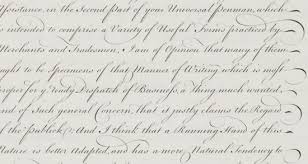 Assistance, in the Second Part of your Universal Penman, which
is intended to comprise a Variety of Useful Forms practised by
Merchants and Tradesmen, I am of Opinion that many of them
ought to be Specimens of that Manner of Writing which is most
proper for ye ready Dispatch of Business, a Thing much wanted,
and of Such general Concern, that it justly claims the Regard
of the Publick: And I think that a Running Hand of this
Nature is better Adapted, and has a more Natural Tendency to